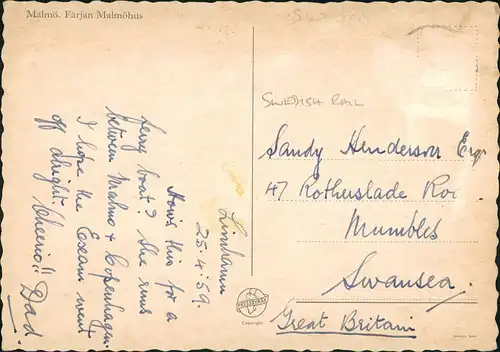 Malmö. Färjan Malmöhus
SWEDISH RAIL
Limhamn
25.4.59.
How's this for a
ferry boat? She runs
between Malmo & Copenhagen.
I hope the Exam went
off alright. Cheerio!!
Dad.
Sandy Henderson Esqr
47 Rotherslade Ro
Mumbles
Swansea.
Great Britain
Copyright